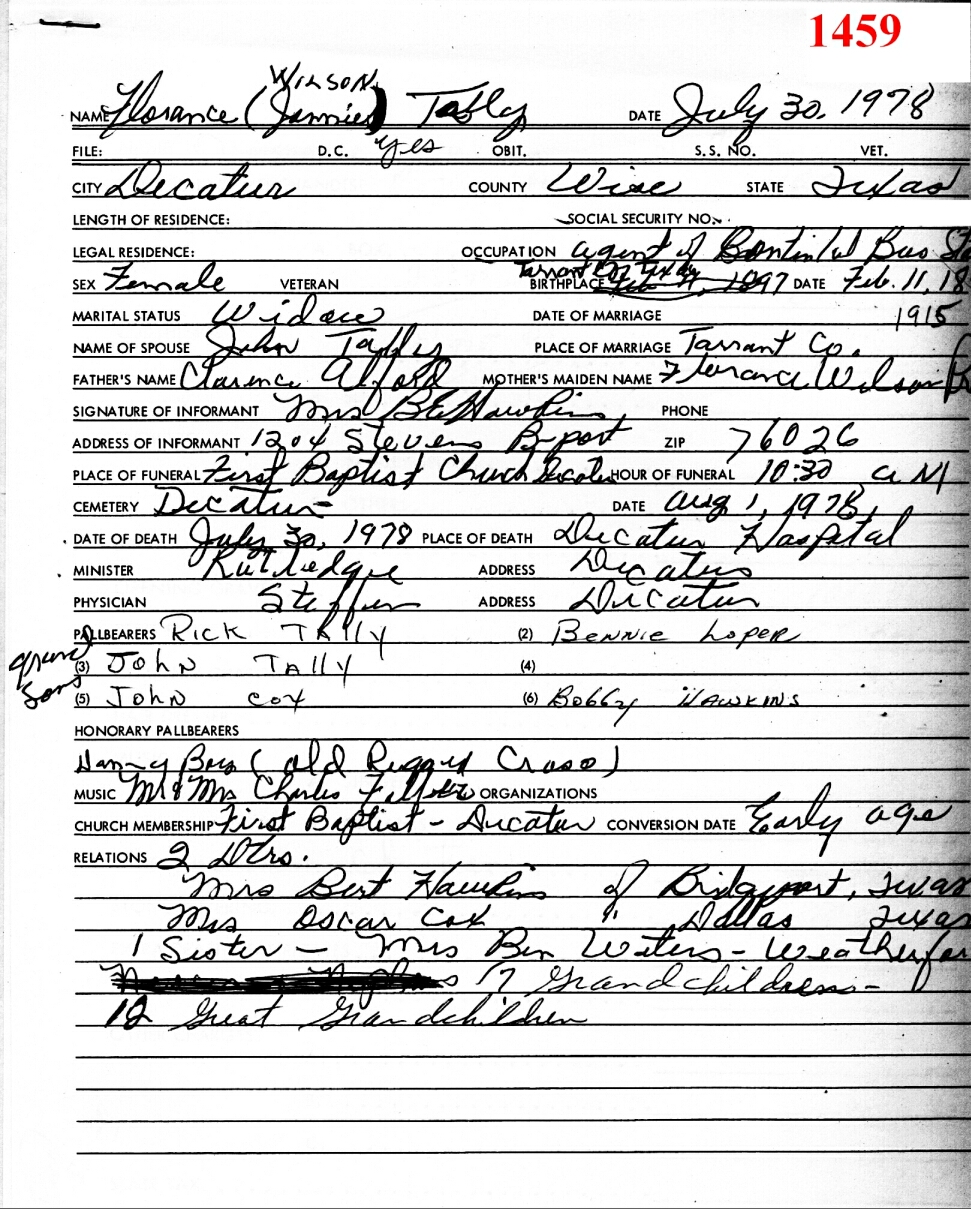 1459
WILSON
NAME Florance (Jimmie) Tally DATE July 30, 1978
FILE: D.C. yes OBIT. S.S. NO. VET.
CITY Decatur COUNTY Wise STATE Texas
LENGTH OF RESIDENCE: SOCIAL SECURITY NO.
LEGAL RESIDENCE: OCCUPATION agent of Bus Sta
Tarrant Co, Texas
SEX Female VETERAN BIRTHPLACE 1897 DATE Feb. 11, 18
MARITAL STATUS Widow DATE OF MARRIAGE 1915
NAME OF SPOUSE John Tally PLACE OF MARRIAGE Tarrant Co.
FATHER'S NAME Clarence Alford MOTHER'S MAIDEN NAME Florance Wilson
SIGNATURE OF INFORMANT Mrs Bt Hawkins PHONE
ADDRESS OF INFORMANT 1204 Stevens B-port ZIP 76026
PLACE OF FUNERAL First Baptist Church Decatur HOUR OF FUNERAL 10:30 a M
CEMETERY Decatur DATE Aug 1, 1978
DATE OF DEATH July 30, 1978 PLACE OF DEATH Decatur Hospital
MINISTER Rutledge ADDRESS Decatur
PHYSICIAN ADDRESS Decatur
PALLBEARERS RICK TAlly (2) BENNIE LOPER
grand sons
(3) JOhN TAlly (4)
(5) JOhN COX (6) BOBBY HAWKINS
HONORARY PALLBEARERS
(Old Rugged Cross)
MUSIC Mr & Mrs Charles ORGANIZATIONS
CHURCH MEMBERSHIP First Baptist - Decatur CONVERSION DATE Early age
RELATIONS 2 Dtrs.
Mrs Bert Hawkins of Bridgeport, Texas
Mrs Oscar Cox " Dallas Texas
1 Sister - Mrs Ben Waters - Weatherfor
17 Grandchildren -
12 Great Grandchildren